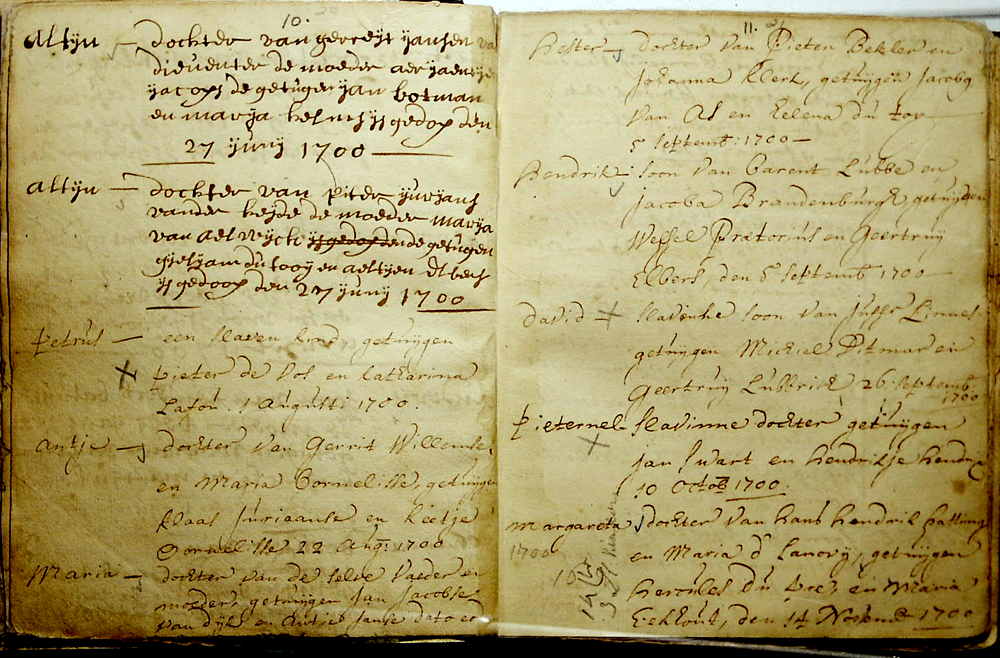 10.
Altijn — dochter van gerreijt Jansen va
dieventer de moeder aerjaentje
Jacops de getugen Jan botman
en marija helms is gedop den
27 Junij 1700
Altijn — dochter van piter Jurjans
vander heijde de moeder marija
van aelwijck de getugen
du tooij en aeltijen Elbers
is gedoop den 27 Junij 1700
Petrus — een slaven kind, getuijgen
pieter de Vos en Catharina
Lafou. 1 Augusti 1700.
Antje — dochter van Gerrit Willemse
en Maria Cornelisse, getuijgen
Klaas Juriaanse en Eeetje
Cornelisse 22 Aug: 1700
Maria — dochter van de selve Vaeder en
moeder, getuijgen Jan Jacobse
van dijk en Antje Janse dato ed
11.
Hester — dochter van Pieter Bekker en
Johanna Klerk, getuijgen Jacobus
Van As en Elena du toy
5 Septemb: 1700 —
Hendrik, soon van Barent Lubbe en
Jacoba Brandenburgh, getuijgen
Wessel Prætorius en Geertruij
Elbers, den 5 Septemb 1700
david — slavinne soon van Juffr Linnes
getuijgen Michiel Ditmar en
Geertruij Lubbrick 26: Septemb:
1700
Pieternel. slavinne dochter getuijgen
Jan Swart en Hendrikje Hendrix
10 Octob 1700.
Margareta dochter van Hans Hendrik hattingh
1700
en Maria d' Lanoy, getuijgen
Hercules du Pree, en Maria
Eekhout, den 14 Novemb 1700